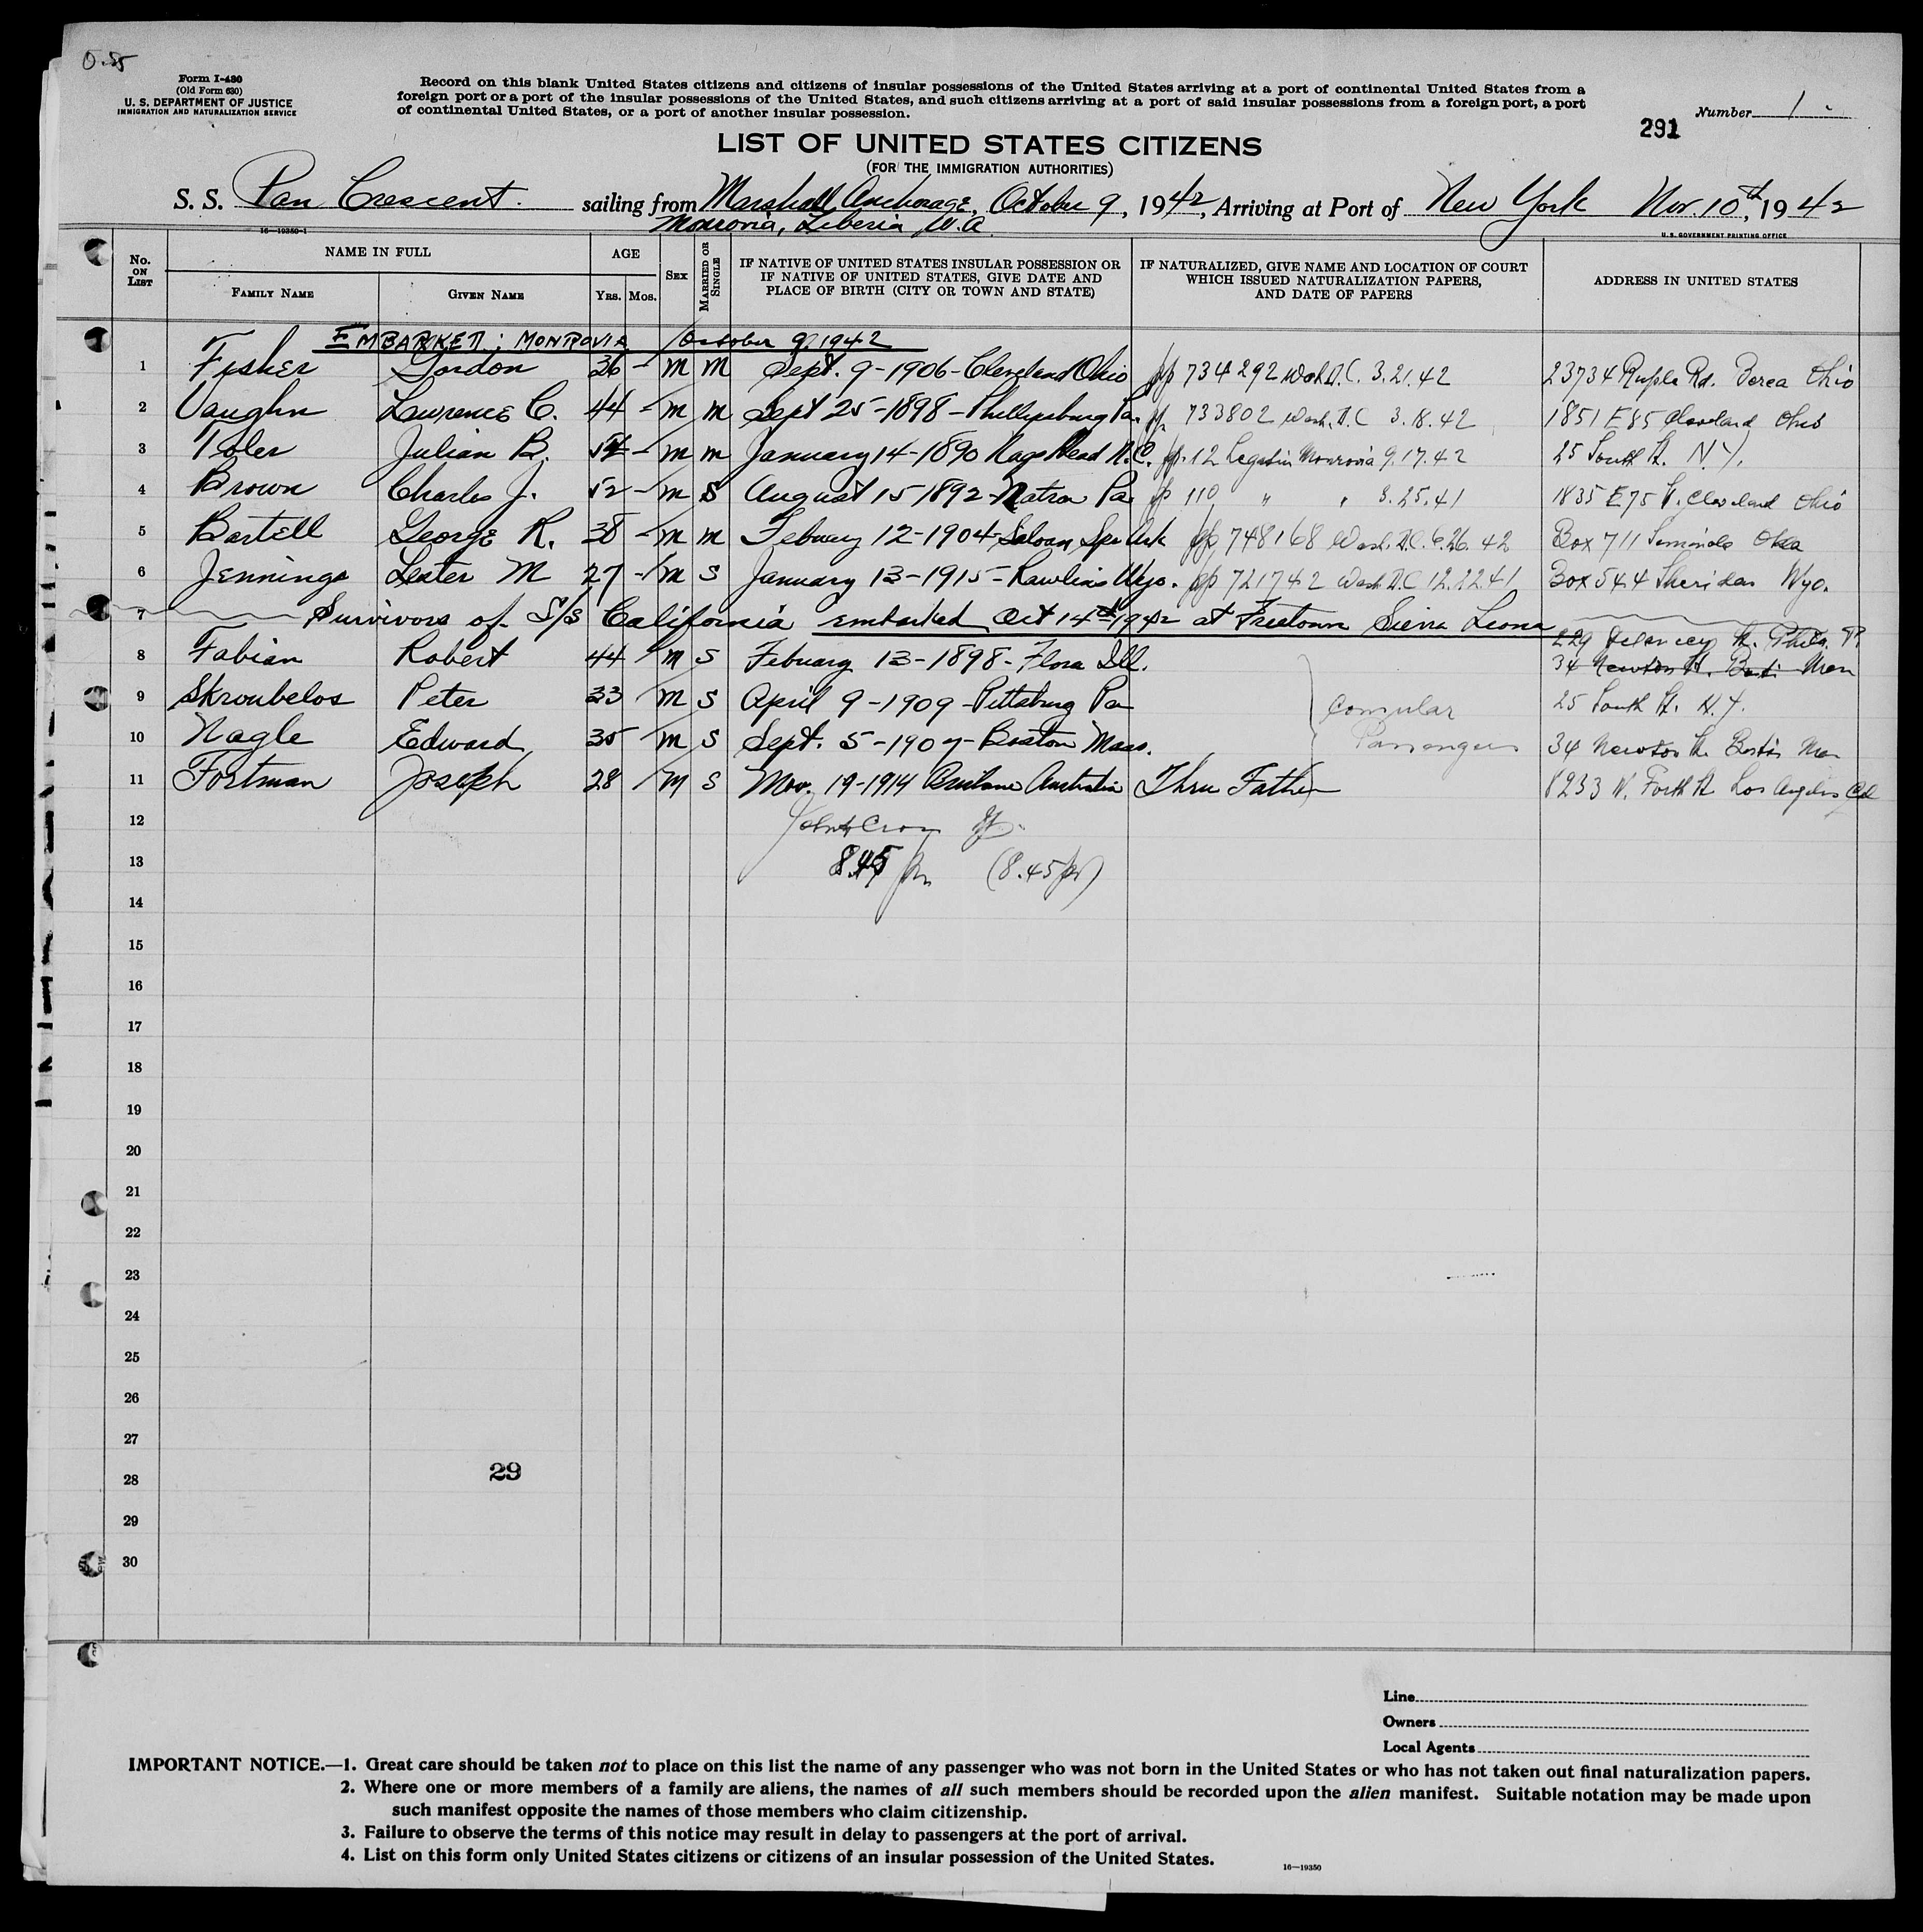 Form I-430
(Old Form 630)
U. S. DEPARTMENT OF JUSTICE
IMMIGRATION AND NATURALIZATION SERVICE
Record on this blank United States citizens and citizens of insular possessions of the United States arriving at a port of continental United States from a
foreign port or a port of the insular possessions of the United States, and such citizens arriving at a port of said insular possessions from a foreign port, a port
of continental United States, or a port of another insular possession.
Number 1
291
LIST OF UNITED STATES CITIZENS
(FOR THE IMMIGRATION AUTHORITIES)
S. S. Pan Crescent. sailing from Marshall Anchorage, October 9, 1942, Arriving at Port of New York Nov. 10th, 1942
Monrovia, Liberia, W.A.
16—19350-1
U. S. GOVERNMENT PRINTING OFFICE
No. ON LIST
NAME IN FULL
FAMILY NAME
GIVEN NAME
AGE
YRS. MOS.
SEX
MARRIED OR SINGLE
IF NATIVE OF UNITED STATES INSULAR POSSESSION OR
IF NATIVE OF UNITED STATES, GIVE DATE AND
PLACE OF BIRTH (CITY OR TOWN AND STATE)
IF NATURALIZED, GIVE NAME AND LOCATION OF COURT
WHICH ISSUED NATURALIZATION PAPERS,
AND DATE OF PAPERS
ADDRESS IN UNITED STATES
EMBARKED: MONROVIA October 9, 1942
1 Fisher Gordon 36 - m m Sept. 9-1906-Cleveland Ohio pp 734292 Wash D.C. 3.21.42 23734 Ruple Rd. Berea Ohio
2 Vaughn Lawrence C. 44 - m m Sept 25-1898-Phillipsburg Pa. pp 733802 Wash. D.C 3.18.42 1851 E 85 Cleveland Ohio
3 Toler Julian B. - m m January 14-1890 Nags Head N.C. pp. 12 Legation Monrovia 9.17.42 25 South St. N.Y.
4 Brown Charles J. 52 - m S August 15-1892-Natrona Pa pp 110 " " 8.25.41 1835 E 75 St. Cleveland Ohio
5 Bartell George R. 38 - m m Febuary 12-1904-Saloan Spr Ark pp 748168 Wash. D.C. 6.26.42 Box 711 Seminole Okla
6 Jennings Lester M 27 - m S January 13-1915-Rawlins Wyo. pp 721742 Wash D.C 12.22.41 Box 544 Sheridan Wyo.
7 Survivors of S/S California embarked Oct 14th 1942 at Freetown Sierra Leona
229 Delancey St. Phila. P.
8 Fabian Robert 44 m S Febuary 13-1898-Flora Ill. 34 Newton St. Bost. Mass
9 Skroubelos Peter 33 m S April 9-1909-Pittsburg Pa Consular 25 South St. N.Y.
10 Nagle Edward 35 m S Sept. 5-1907-Boston Mass. Passengers 34 Newton St. Boston Mass
11 Fortman Joseph 28 M S Nov. 19-1914 Brisbane Australia Thru Father 8233 W. Forth St Los Angeles Cal
12
13 845 pm (8.45 pm)
14
15
16
17
18
19
20
21
22
23
24
25
26
27
28 29
29
30
Line
Owners
Local Agents
IMPORTANT NOTICE.—1. Great care should be taken not to place on this list the name of any passenger who was not born in the United States or who has not taken out final naturalization papers.
2. Where one or more members of a family are aliens, the names of all such members should be recorded upon the alien manifest. Suitable notation may be made upon
such manifest opposite the names of those members who claim citizenship.
3. Failure to observe the terms of this notice may result in delay to passengers at the port of arrival.
4. List on this form only United States citizens or citizens of an insular possession of the United States.
16—19350